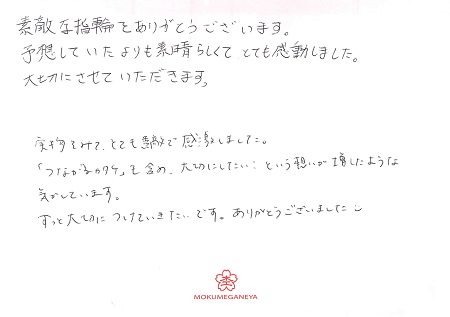 素敵な指輪をありがとうございます。
予想していたよりも素晴らしくてとても感動しました。
大切にさせていただきます。
実物をみて、とても素敵で感激しました。
「つながるカタチ」も含め、大切にしたい…という想いが増したような
気がしています。
ずっと大切につけていきたいです。ありがとうございました
MOKUMEGANEYA